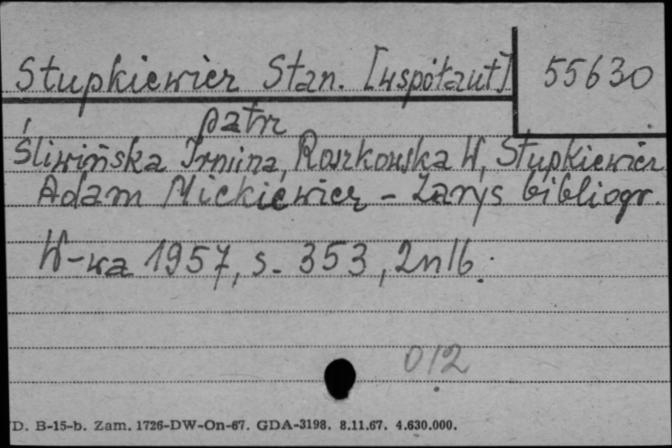 Stupkiewicz Stan. [współaut] 55630
patrz
Śliwińska Irmina, Roszkowska W, Stupkiewicz
Adam Mickiewicz - Zarys bibliogr.
W-wa 1957, s. 353, 2nlb.
012
D. B-15-b. Zam. 1726-DW-On-67. GDA-3198. 8.11.67. 4.630.000.